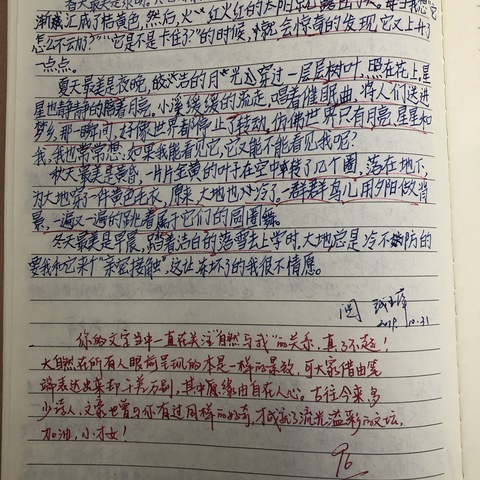 渐渐汇成了桔黄色,然后,火火红火红的太阳就露出了头。每当我想"它
怎么不会动?""它是不是卡住了?"的时候,就会惊喜的发现它又上升了
一点点。
夏天最美是夜晚,皎洁的月光,穿过一层层树叶,照在花上,星
星也静静的陪着月亮。小溪缓缓的流走,唱着催眠曲,将人们送进
梦乡,那一瞬间,好像世界都停止了转动。仿佛世界只有月亮,星星和
我,我也常常思:如果我能看见它,它又能不能看见我呢?
秋天最美是黄昏,一片片金黄的叶子在空中转了几个圈,落在地下,
为大地穿一件黄色毛衣,原来,大地也怕冷了。一群群鸟儿用夕阳做背
景,一遍又一遍的跳着属于它们的圆圈舞。
冬天最美是早晨,踏着洁白的落雪去上学时,大地总是冷不防的
要我和它来个"亲密接触"这让冻坏了的我很不情愿。
阅
2019.10.31
你的文字当中一直在关注"自然与我"的关系,真了不起!
大自然在所有人眼前呈现的本是一样的景致,可大家借由笔
端表达出来却千差万别,其中原缘由自在人心。古往今来,多
少诗人、文豪也曾与你有过同样的好奇,才成就了流光溢彩的文坛,
加油,小才女!
96